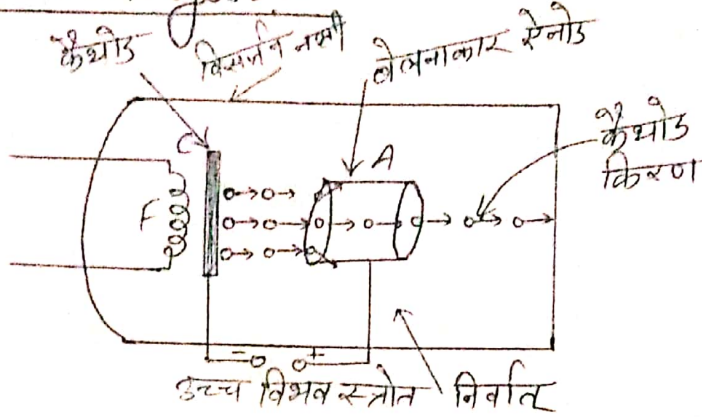 कैथोड
विसर्जन नली
बेलनाकार ऐनोड
कैथोड
किरण
C
A
F
- +
उच्च विभव स्त्रोत
निर्वात